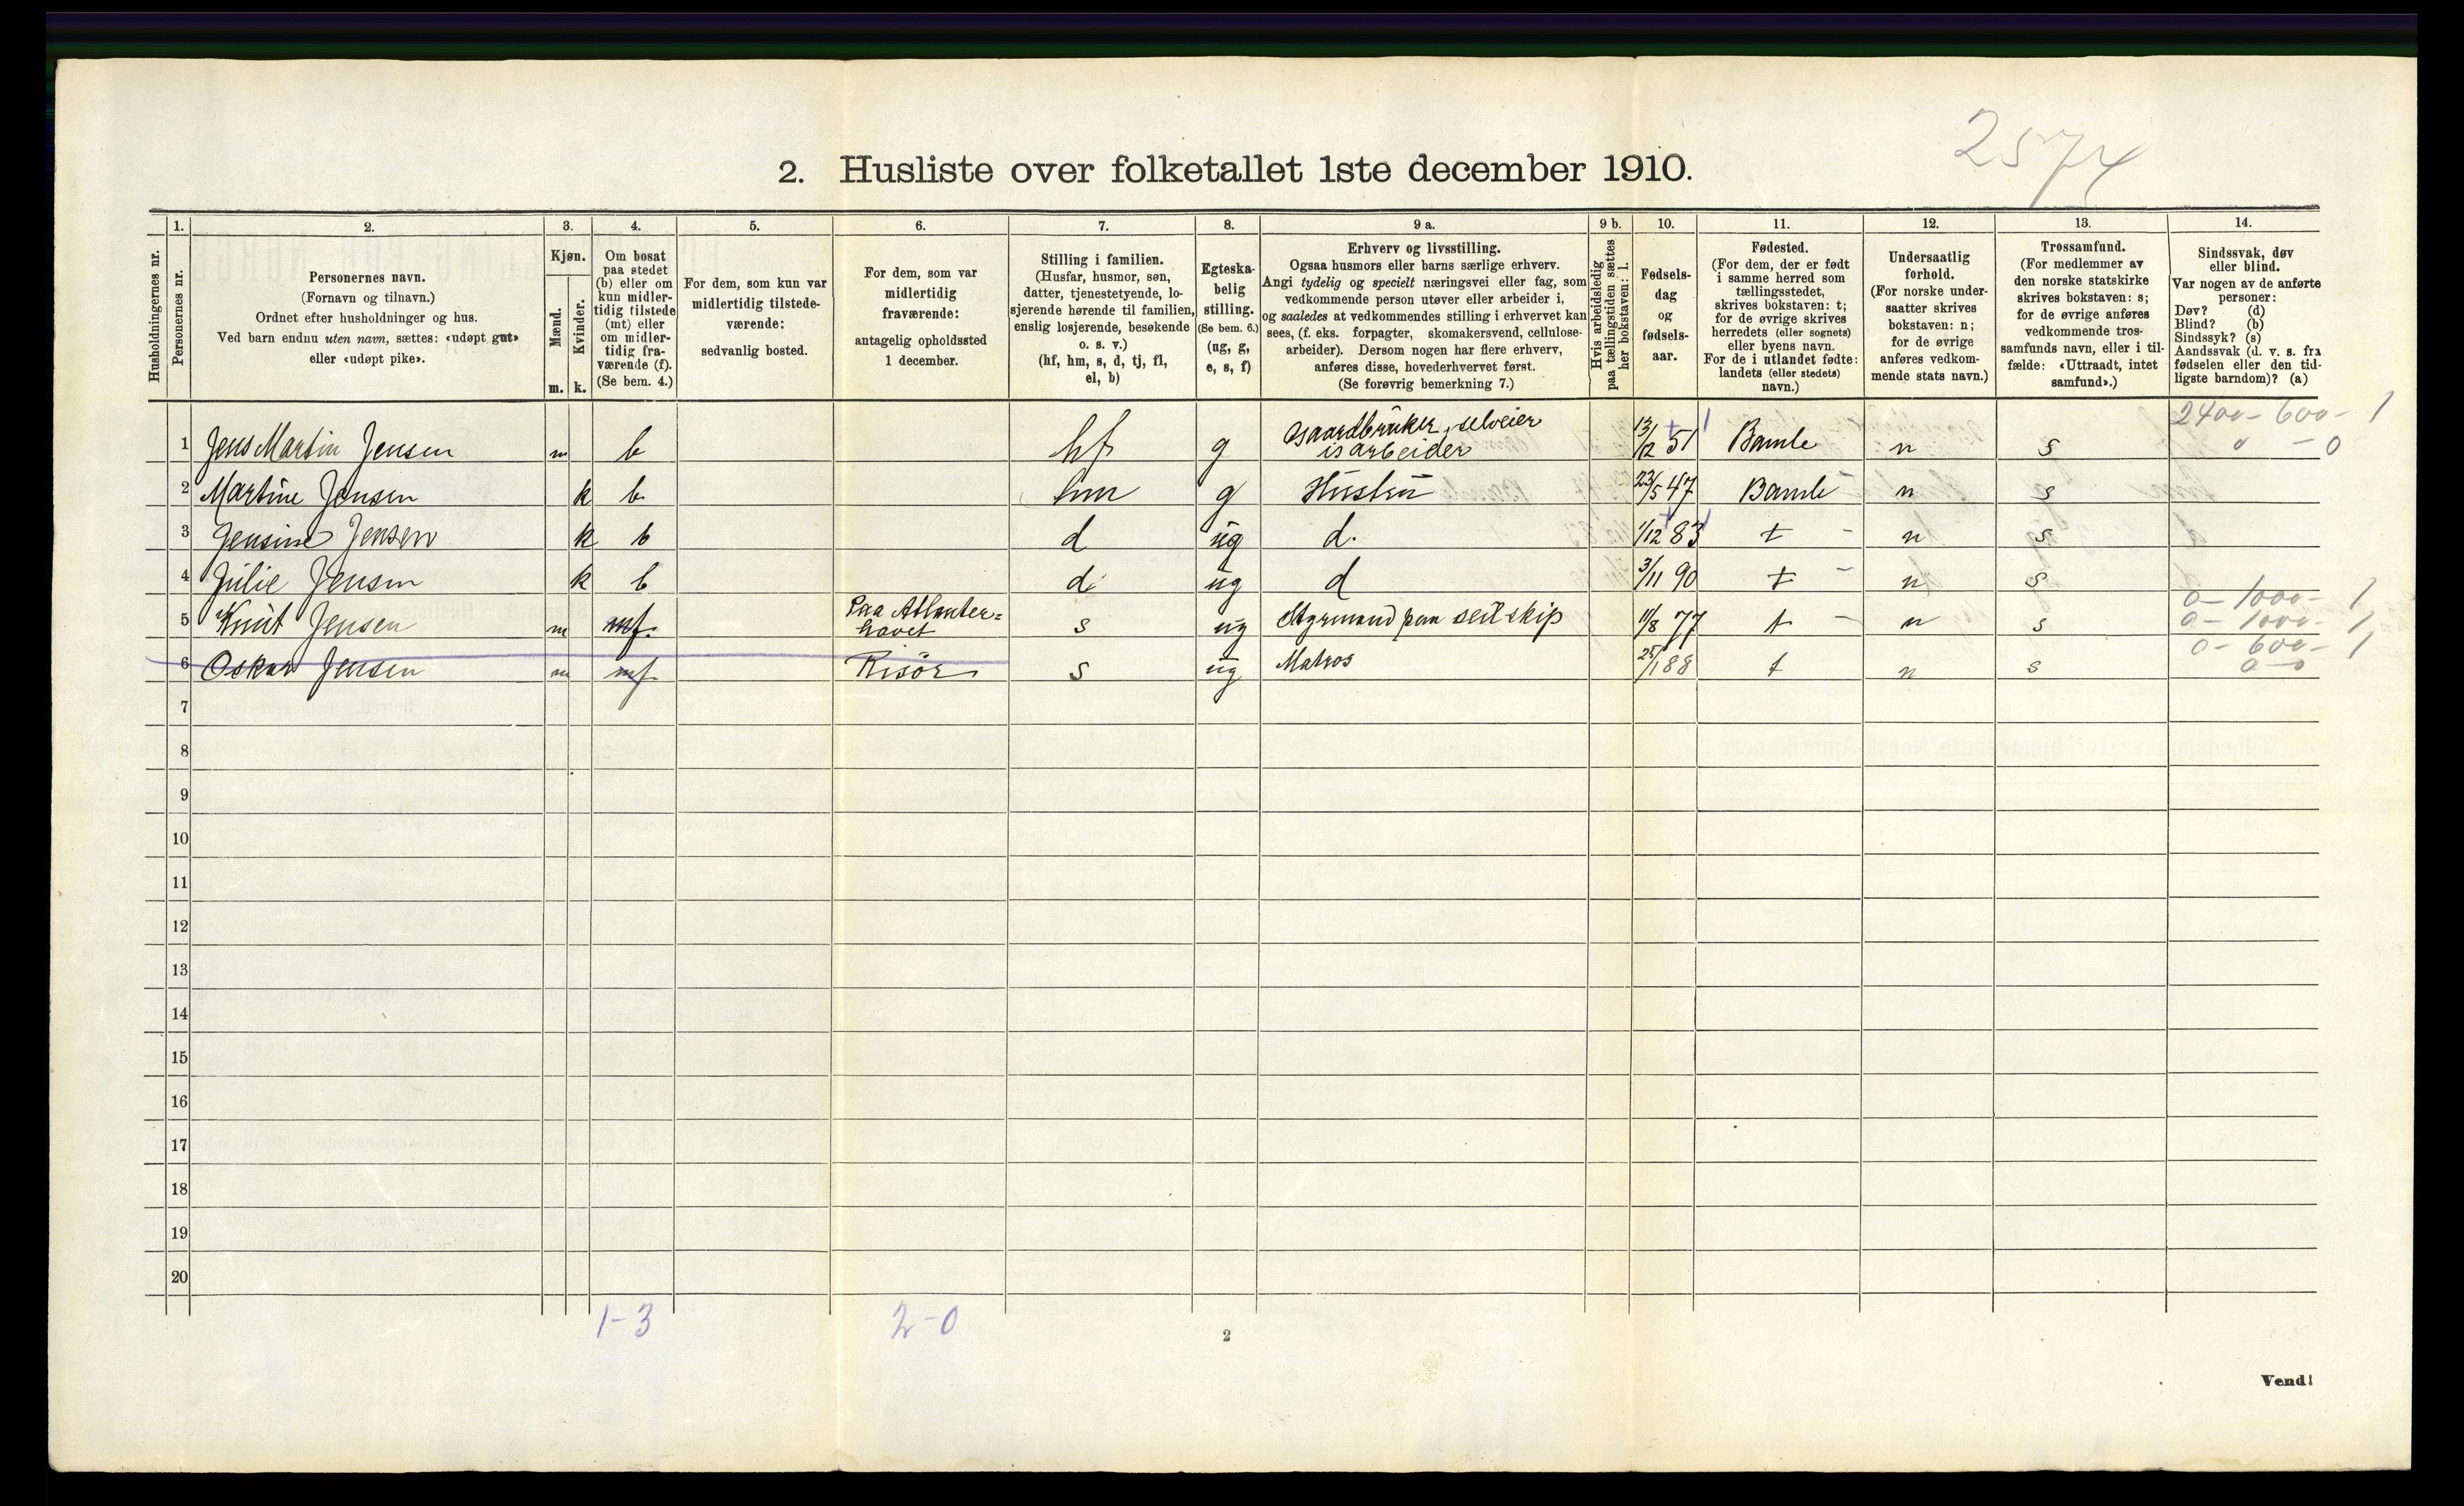 2574
2. Husliste over folketallet 1ste december 1910.
1. 2. 3. 4. 5. 6. 7. 8. 9 a. 9 b. 10. 11. 12. 13. 14.
Husholdningernes nr.
Personernes nr.
Personernes navn.
(Fornavn og tilnavn.)
Ordnet efter husholdninger og hus.
Ved barn endnu uten navn, sættes: «udøpt gut»
eller «udøpt pike».
Kjøn.
Mænd.
Kvinder.
m. k.
Om bosat
paa stedet
(b) eller om
kun midler-
tidig tilstede
(mt) eller
om midler-
tidig fra-
værende (f).
(Se bem. 4.)
For dem, som kun var
midlertidig tilstede-
værende:
sedvanlig bosted.
For dem, som var
midlertidig
fraværende:
antagelig opholdssted
1 december.
Stilling i familien.
(Husfar, husmor, søn,
datter, tjenestetyende, lo-
sjerende hørende til familien,
enslig losjerende, besøkende
o. s. v.)
(hf, hm, s, d, tj, fl,
el, b)
Egteska-
belig
stilling.
(Se bem. 6.)
(ug, g,
e, s, f)
Erhverv og livsstilling.
Ogsaa husmors eller barns særlige erhverv.
Angi tydelig og specielt næringsvei eller fag, som
vedkommende person utøver eller arbeider i,
og saaledes at vedkommendes stilling i erhvervet kan
sees, (f. eks. forpagter, skomakersvend, cellulose-
arbeider). Dersom nogen har flere erhverv,
anføres disse, hovederhvervet først.
(Se forøvrig bemerkning 7.)
Hvis arbeidsledig
paa tællingstiden sættes
her bokstaven: l.
Fødsels-
dag
og
fødsels-
aar.
Fødested.
(For dem, der er født
i samme herred som
tællingsstedet,
skrives bokstaven: t;
for de øvrige skrives
herredets (eller sognets)
eller byens navn.
For de i utlandet fødte:
landets (eller stedets)
navn.)
Undersaatlig
forhold.
(For norske under-
saatter skrives
bokstaven: n;
for de øvrige
anføres vedkom-
mende stats navn.)
Trossamfund.
(For medlemmer av
den norske statskirke
skrives bokstaven: s;
for de øvrige anføres
vedkommende tros-
samfunds navn, eller i til-
fælde: «Uttraadt, intet
samfund».)
Sindssvak, døv
eller blind.
Var nogen av de anførte
personer:
Døv? (d)
Blind? (b)
Sindssyk? (s)
Aandssvak (d. v. s. fra
fødselen eller den tid-
ligste barndom)? (a)
2400 - 600 - 1
1 Jens Martin Jensen m b hf g Gaardbruker, selveier isarbeider 13/12 51 Bamle n s 0 - 0
2 Martine Jensen k b hm g Hustru 23/5 47 Bamle n s
3 Jensine Jensen k b d ug d. 1/12 83 t - n s
4 Julie Jensen k b d ug d 3/11 90 t - n s
0 - 1000 - 1
5 Knut Jensen m mf. Paa Atlanter=havet s ug Styrmand paa seilskip 11/8 77 t - n s 0 - 1000 - 1
0 - 600 - 1
6 Oskar Jensen m mf Risör s ug Matros 25/1 88 t n s 0 - 0
7
8
9
10
11
12
13
14
15
16
17
18
19
20
1-3 2-0
2
Vend!